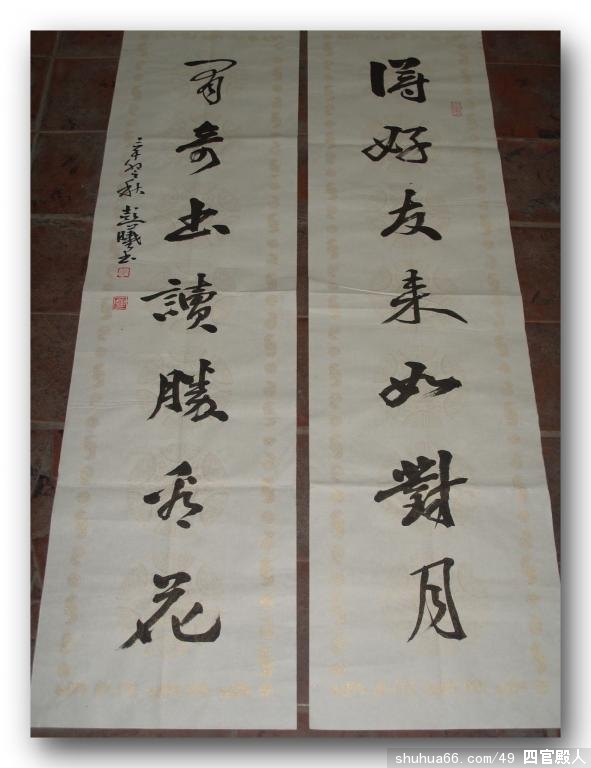 得好友来如對月
有奇书讀勝看花
辛卯之秋
書
shuhua66.com/49 四官殿人